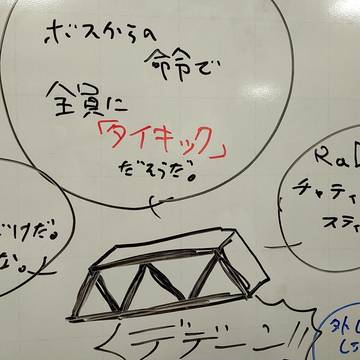 ボスからの
命令で
全員に
「タイキック」
だそうだ。
RaD
チャティ
スティ
だけだ。
な。
デデーン!!
外し